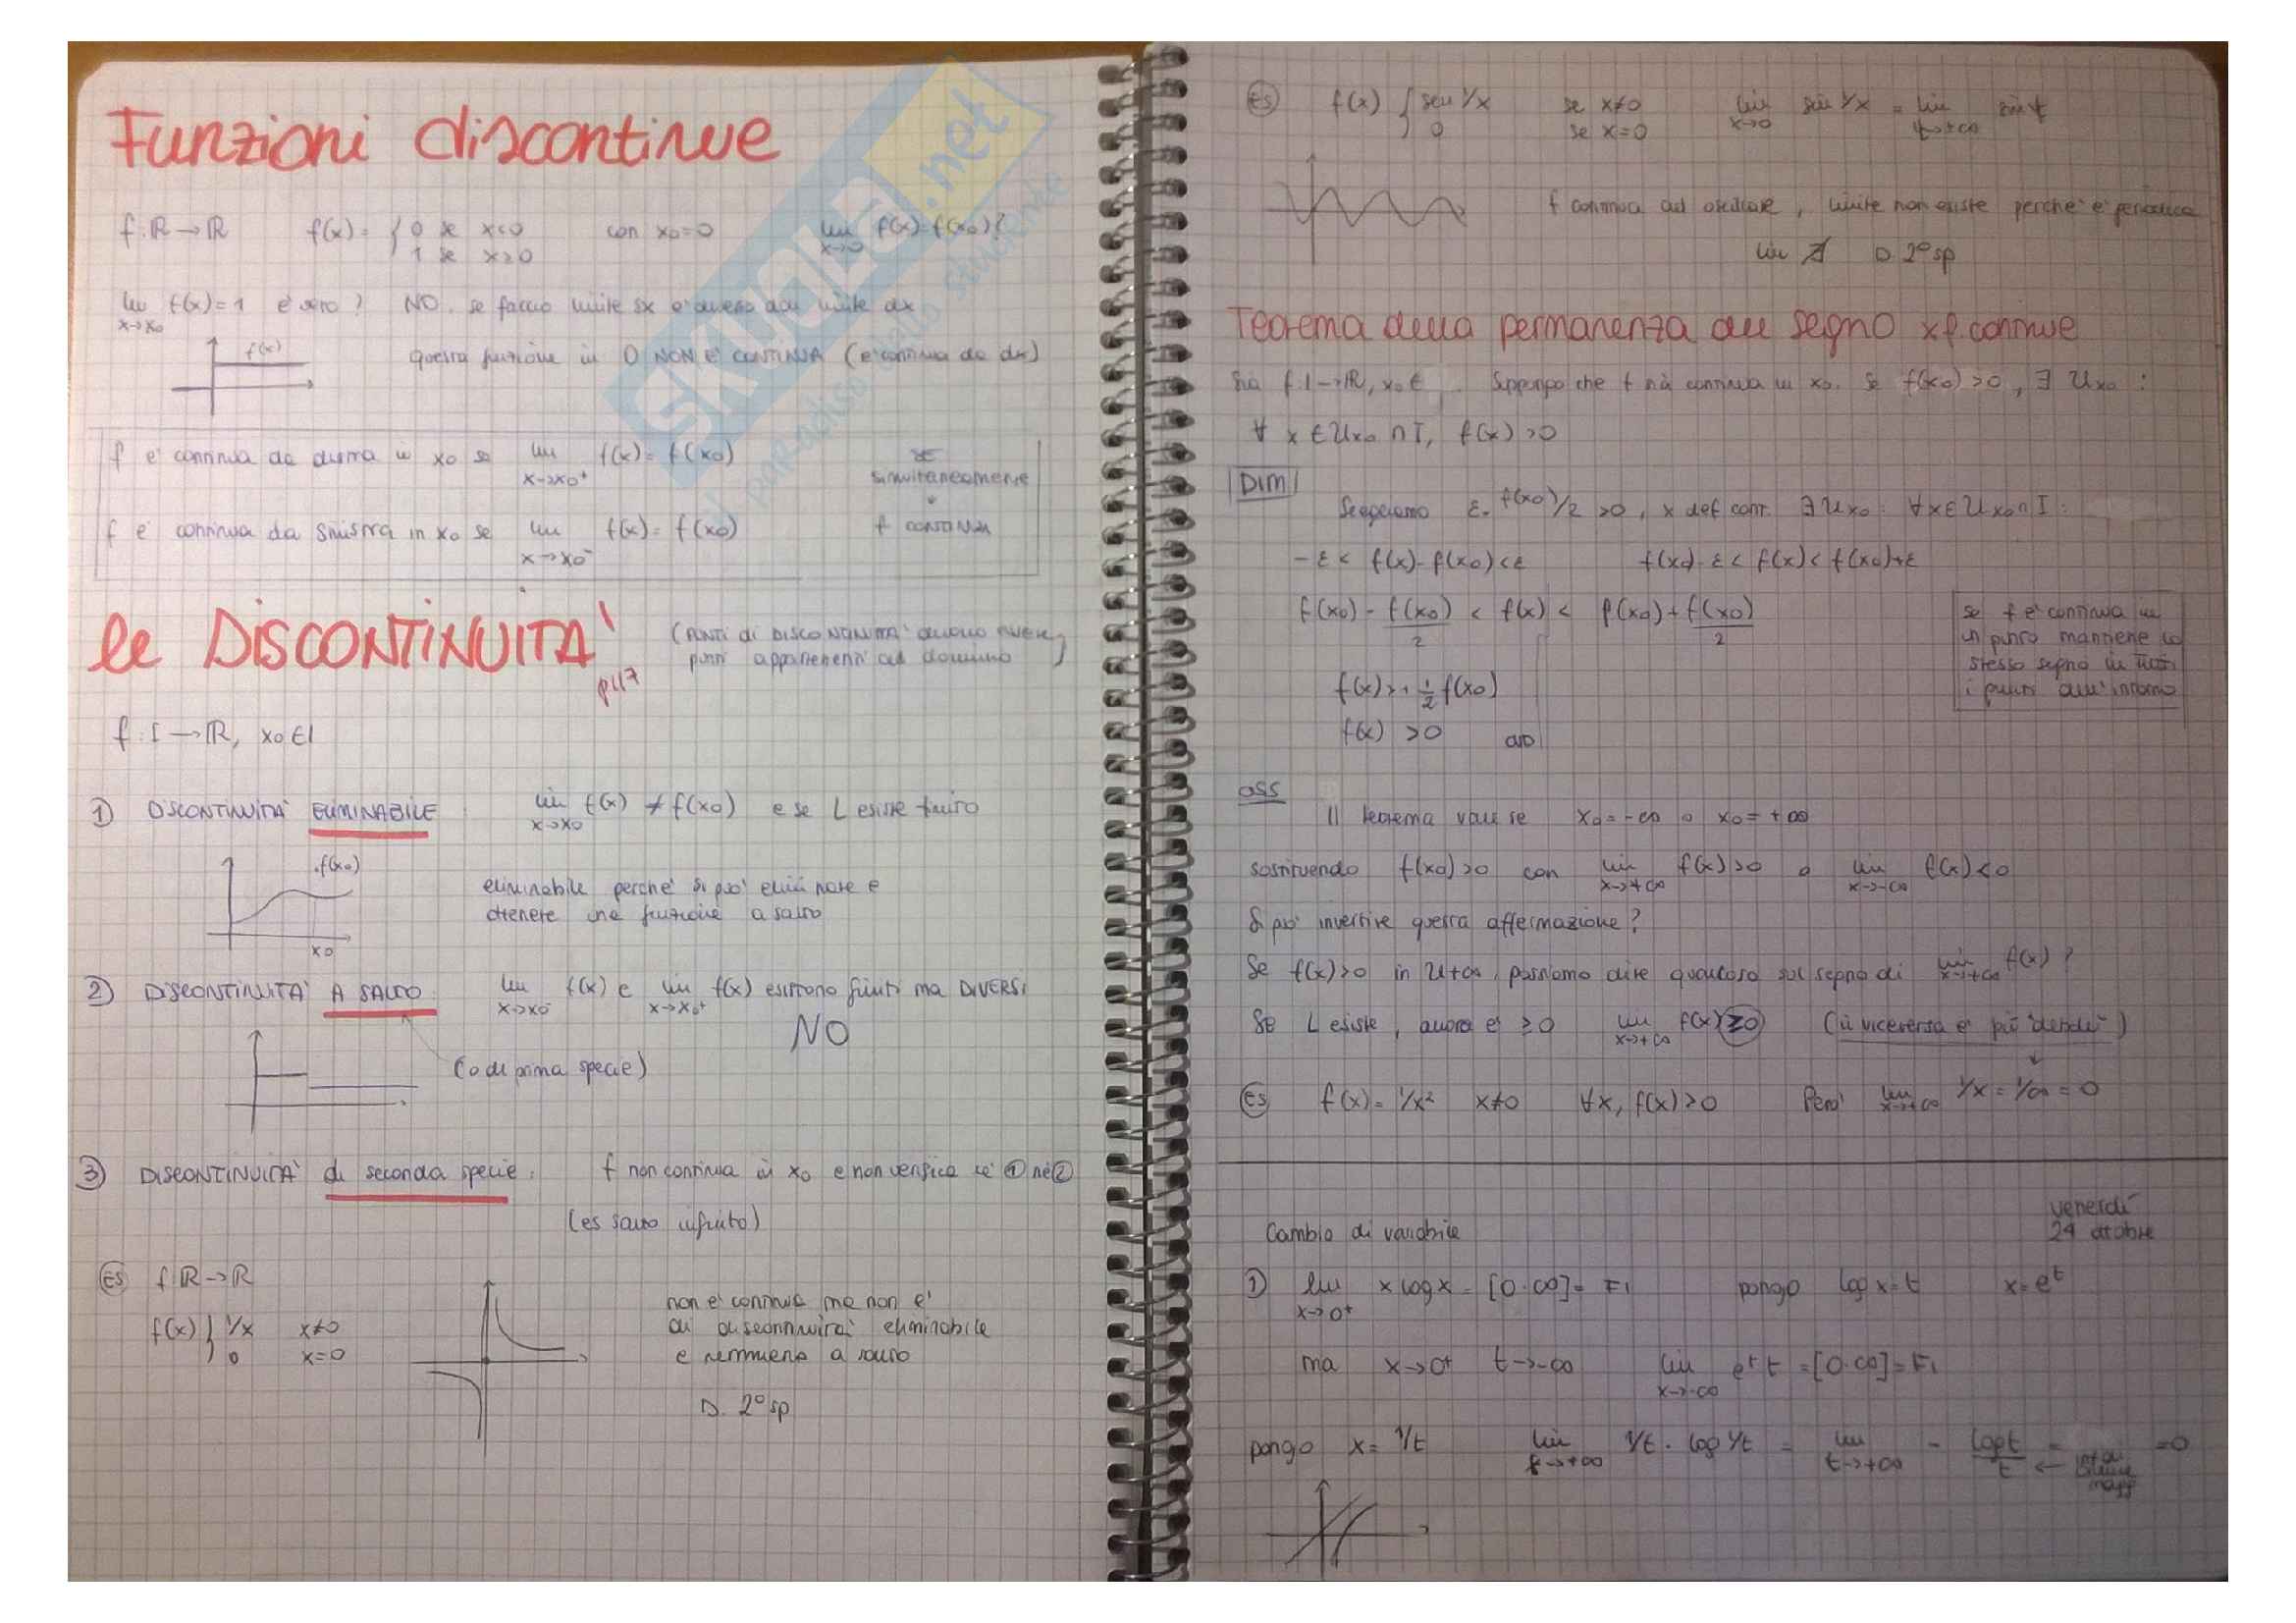 Funzioni discontinue
f: ℝ → ℝ f(x) = { 0 se x<0 con x₀=0 lim x→0 f(x)=f(x₀)?
1 se x≥0
lim x→x₀ f(x)=1 è vero? NO. se faccio limite sx è diverso dal limite dx
f(x)
questa funzione in 0 NON È CONTINUA (è continua da dx)
f è continua da destra in x₀ se lim x→x₀⁺ f(x)=f(x₀)
f è continua da sinistra in x₀ se lim x→x₀⁻ f(x)=f(x₀)
se
simultaneamente
f CONTINUA
le DISCONTINUITÀ
p117
(PUNTI di DISCONTINUITÀ devono essere
punti appartenenti al dominio)
f: I → ℝ, x₀∈I
1) DISCONTINUITÀ ELIMINABILE: lim x→x₀ f(x) ≠ f(x₀) e se L esiste finito
f(x₀)
x₀
eliminabile perchè si può eliminare e
ottenere una funzione a salto
2) DISCONTINUITÀ A SALTO: lim x→x₀⁻ f(x) e lim x→x₀⁺ f(x) esistono finiti ma DIVERSI
NO
(o di prima specie)
3) DISCONTINUITÀ di seconda specie: f non continua in x₀ e non verifica né ① né ②
(es salto infinito)
ES f: ℝ→ℝ
f(x) { 1/x x≠0
0 x=0
non è continua ma non è
di discontinuità eliminabile
e nemmeno a salto
D. 2° sp
ES f(x) { sen 1/x se x≠0 lim x→0 sin 1/x = lim t→+∞ sin t
0 se x=0
f continua ad oscillare, limite non esiste perchè è periodica
lim ∄ D 2° sp
Teorema della permanenza del segno x f. continue
Sia f: I→ℝ, x₀∈ . Suppongo che f sia continua in x₀. Se f(x₀)>0, ∃ Ux₀ :
∀ x∈Ux₀∩I, f(x)>0
DIM
Scegliamo ε= f(x₀)/2 >0, x def cont. ∃Ux₀: ∀x∈Ux₀∩I:
-ε < f(x)-f(x₀)<ε f(x₀)-ε< f(x)< f(x₀)+ε
f(x₀) - f(x₀)/2 < f(x) < f(x₀)+f(x₀)/2
f(x)>+ 1/2 f(x₀)
f(x) >0 cvd
se f è continua in
un punto mantiene lo
stesso segno in tutti
i punti dell'intorno
oss
Il teorema vale se x₀=-∞ o x₀=+∞
sostituendo f(x₀)>0 con lim x→+∞ f(x)>0 o lim x→-∞ f(x)<0
Si può invertire questa affermazione?
Se f(x)>0 in U+∞, possiamo dire qualcosa sul segno di lim x→+∞ f(x)?
Se L esiste, allora è ≥0 lim x→+∞ f(x)≥0 (il viceversa è più "debole")
ES f(x)= 1/x² x≠0 ∀x, f(x)>0 Però lim x→+∞ 1/x = 1/∞ = 0
venerdì
24 ottobre
Cambio di variabile
1) lim x→0⁺ x log x = [0·∞]= FI pongo log x=t x=eᵗ
ma x→0⁺ t→-∞ lim x→-∞ eᵗ t =[0·∞]=FI
pongo x= 1/t lim t→+∞ 1/t · log 1/t = lim t→+∞ - log t/t = =0